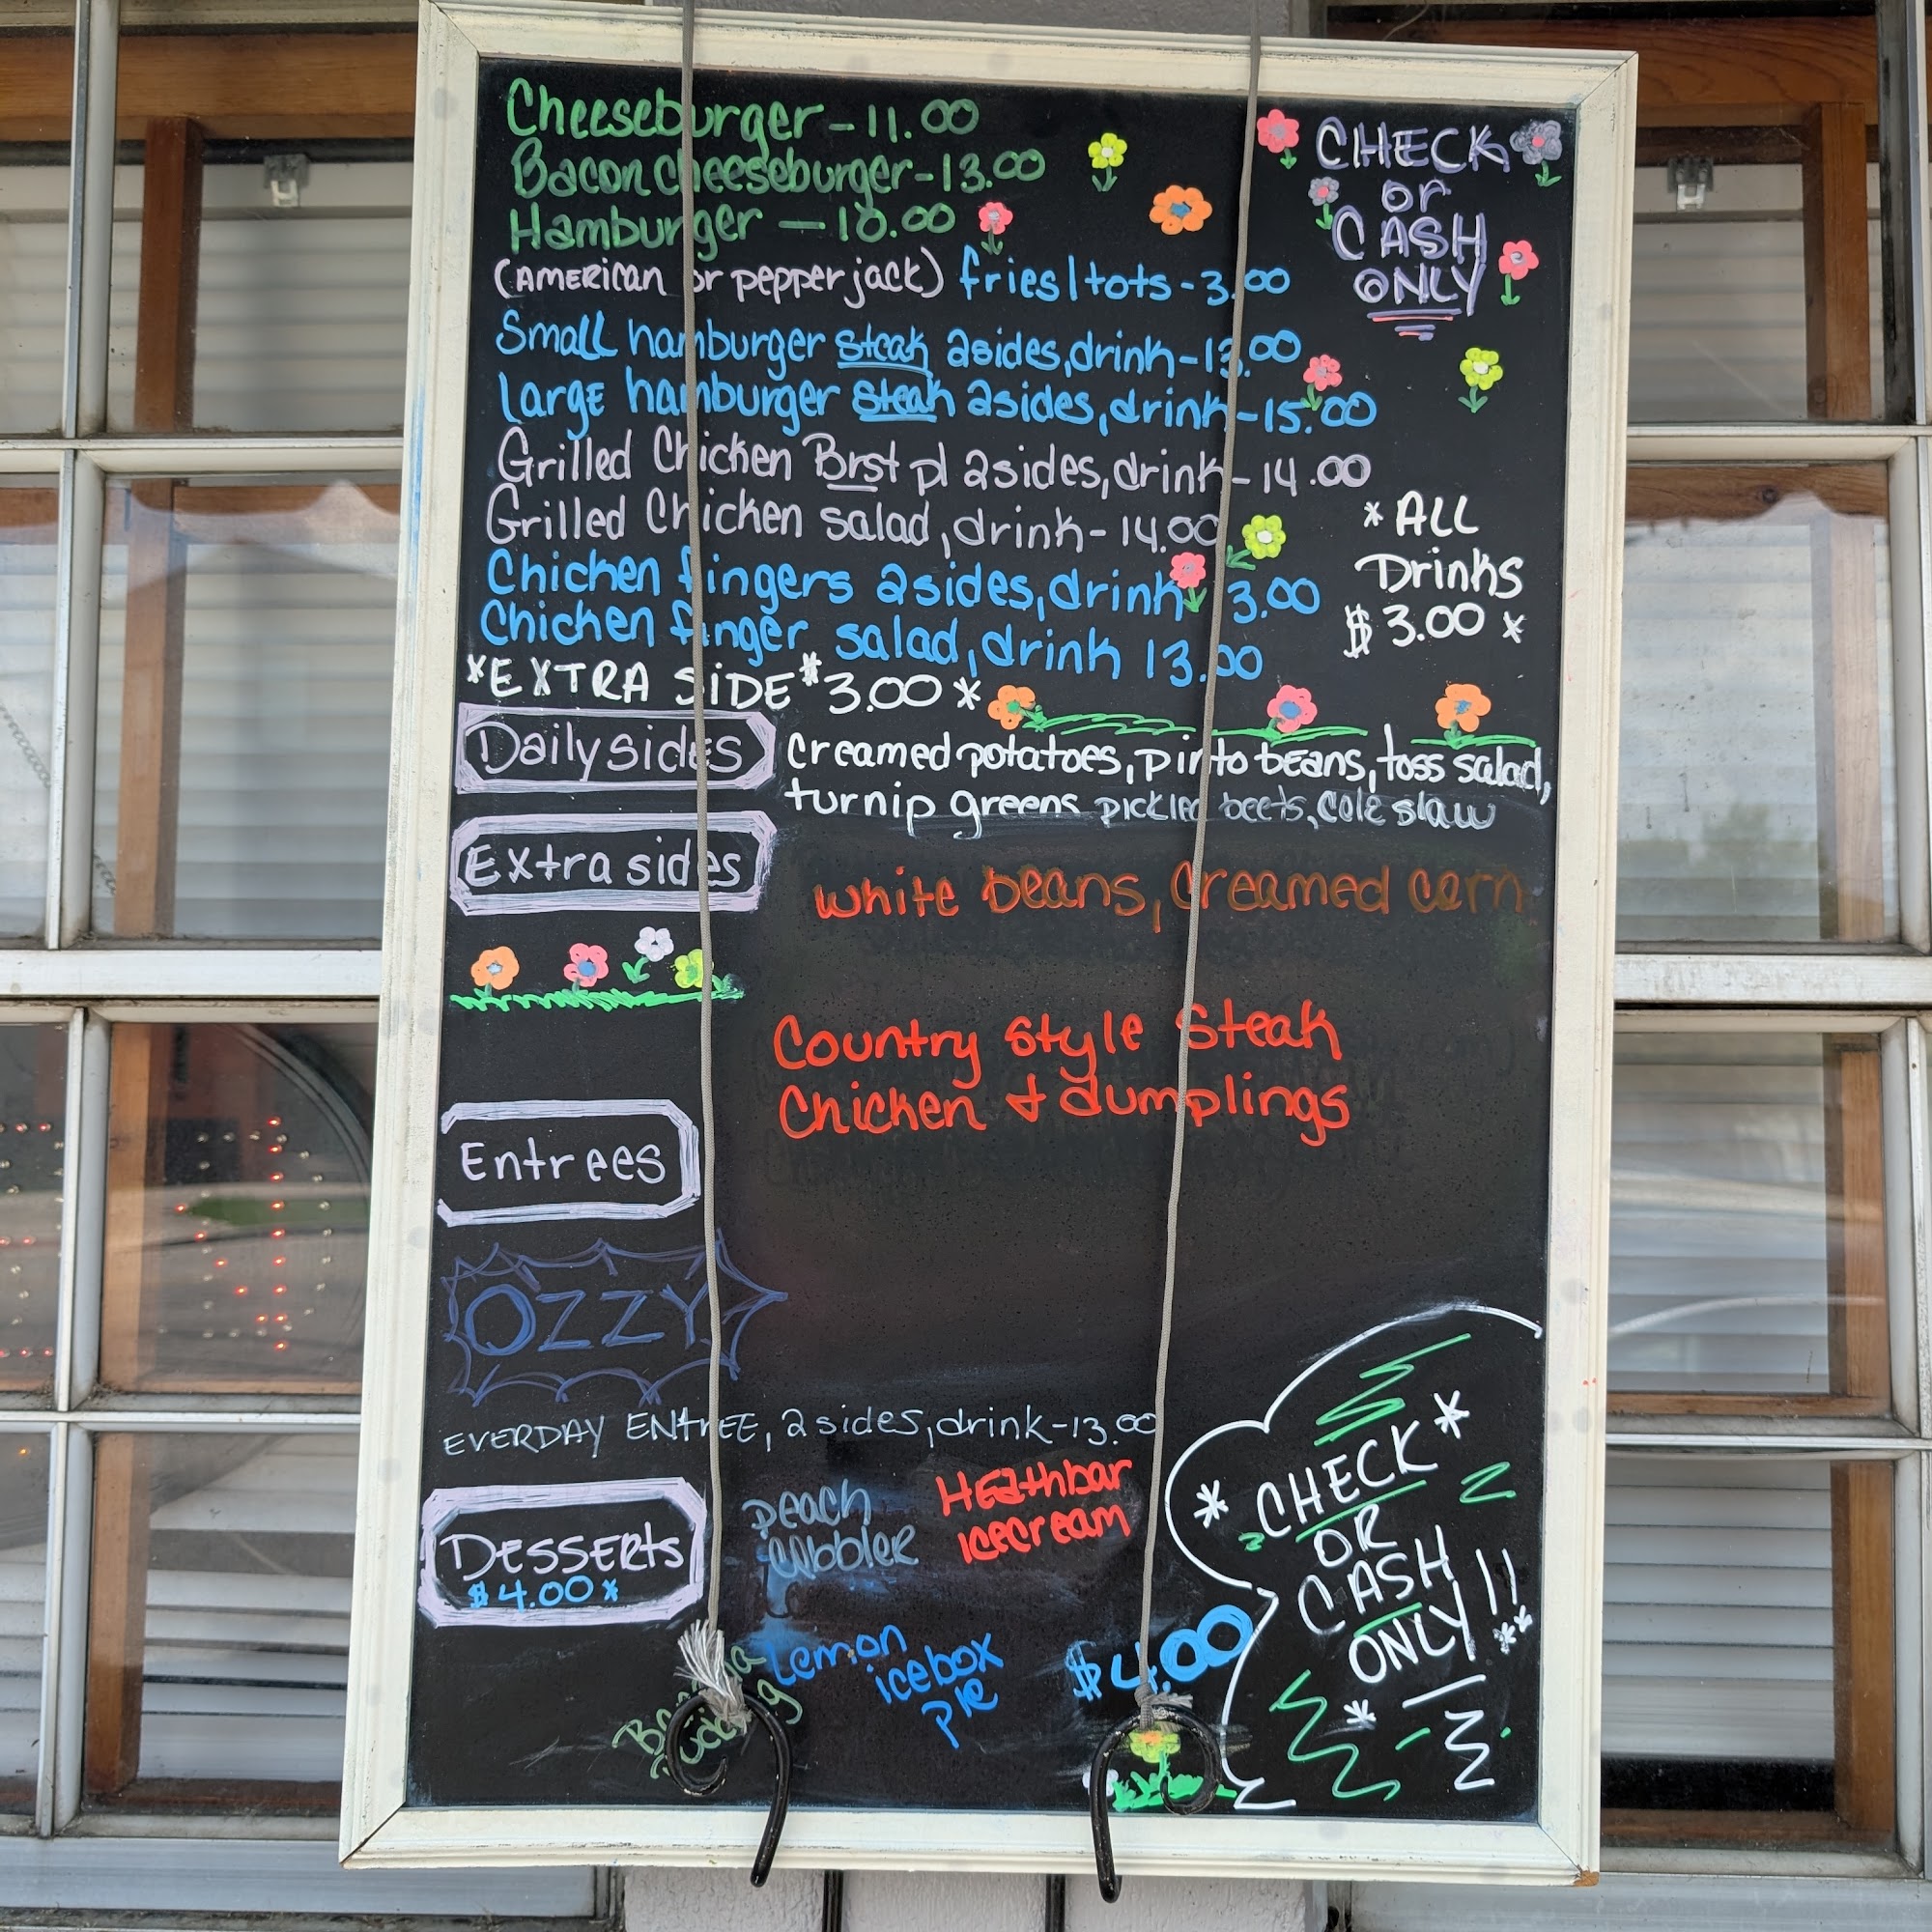 Cheeseburger - 11.00
Bacon cheeseburger - 13.00
Hamburger — 10.00
(AMERICAN or pepperjack) fries/tots - 3.00
CHECK
or
CASH
ONLY
Small hamburger steak 2 sides, drink - 13.00
Large hamburger steak 2 sides, drink - 15.00
Grilled Chicken Brst pl 2 sides, drink - 14.00
Grilled Chicken salad, drink - 14.00
Chicken fingers 2 sides, drink 3.00
Chicken finger salad, drink 13.00
*EXTRA SIDE* 3.00 *
* ALL
Drinks
$ 3.00 *
Daily sides
Creamed potatoes, pinto beans, toss salad,
turnip greens pickled beets, Cole slaw
Extra sides
white beans, Creamed corn
Country Style Steak
Chicken & dumplings
Entrees
OZZY
EVERDAY ENtrEE, 2 sides, drink - 13.00
Desserts
$4.00 *
peach
cobbler
HEathbar
icecream
Lemon
icebox
pie
$4.00
* CHECK *
OR
CASH
ONLY!!
**
*